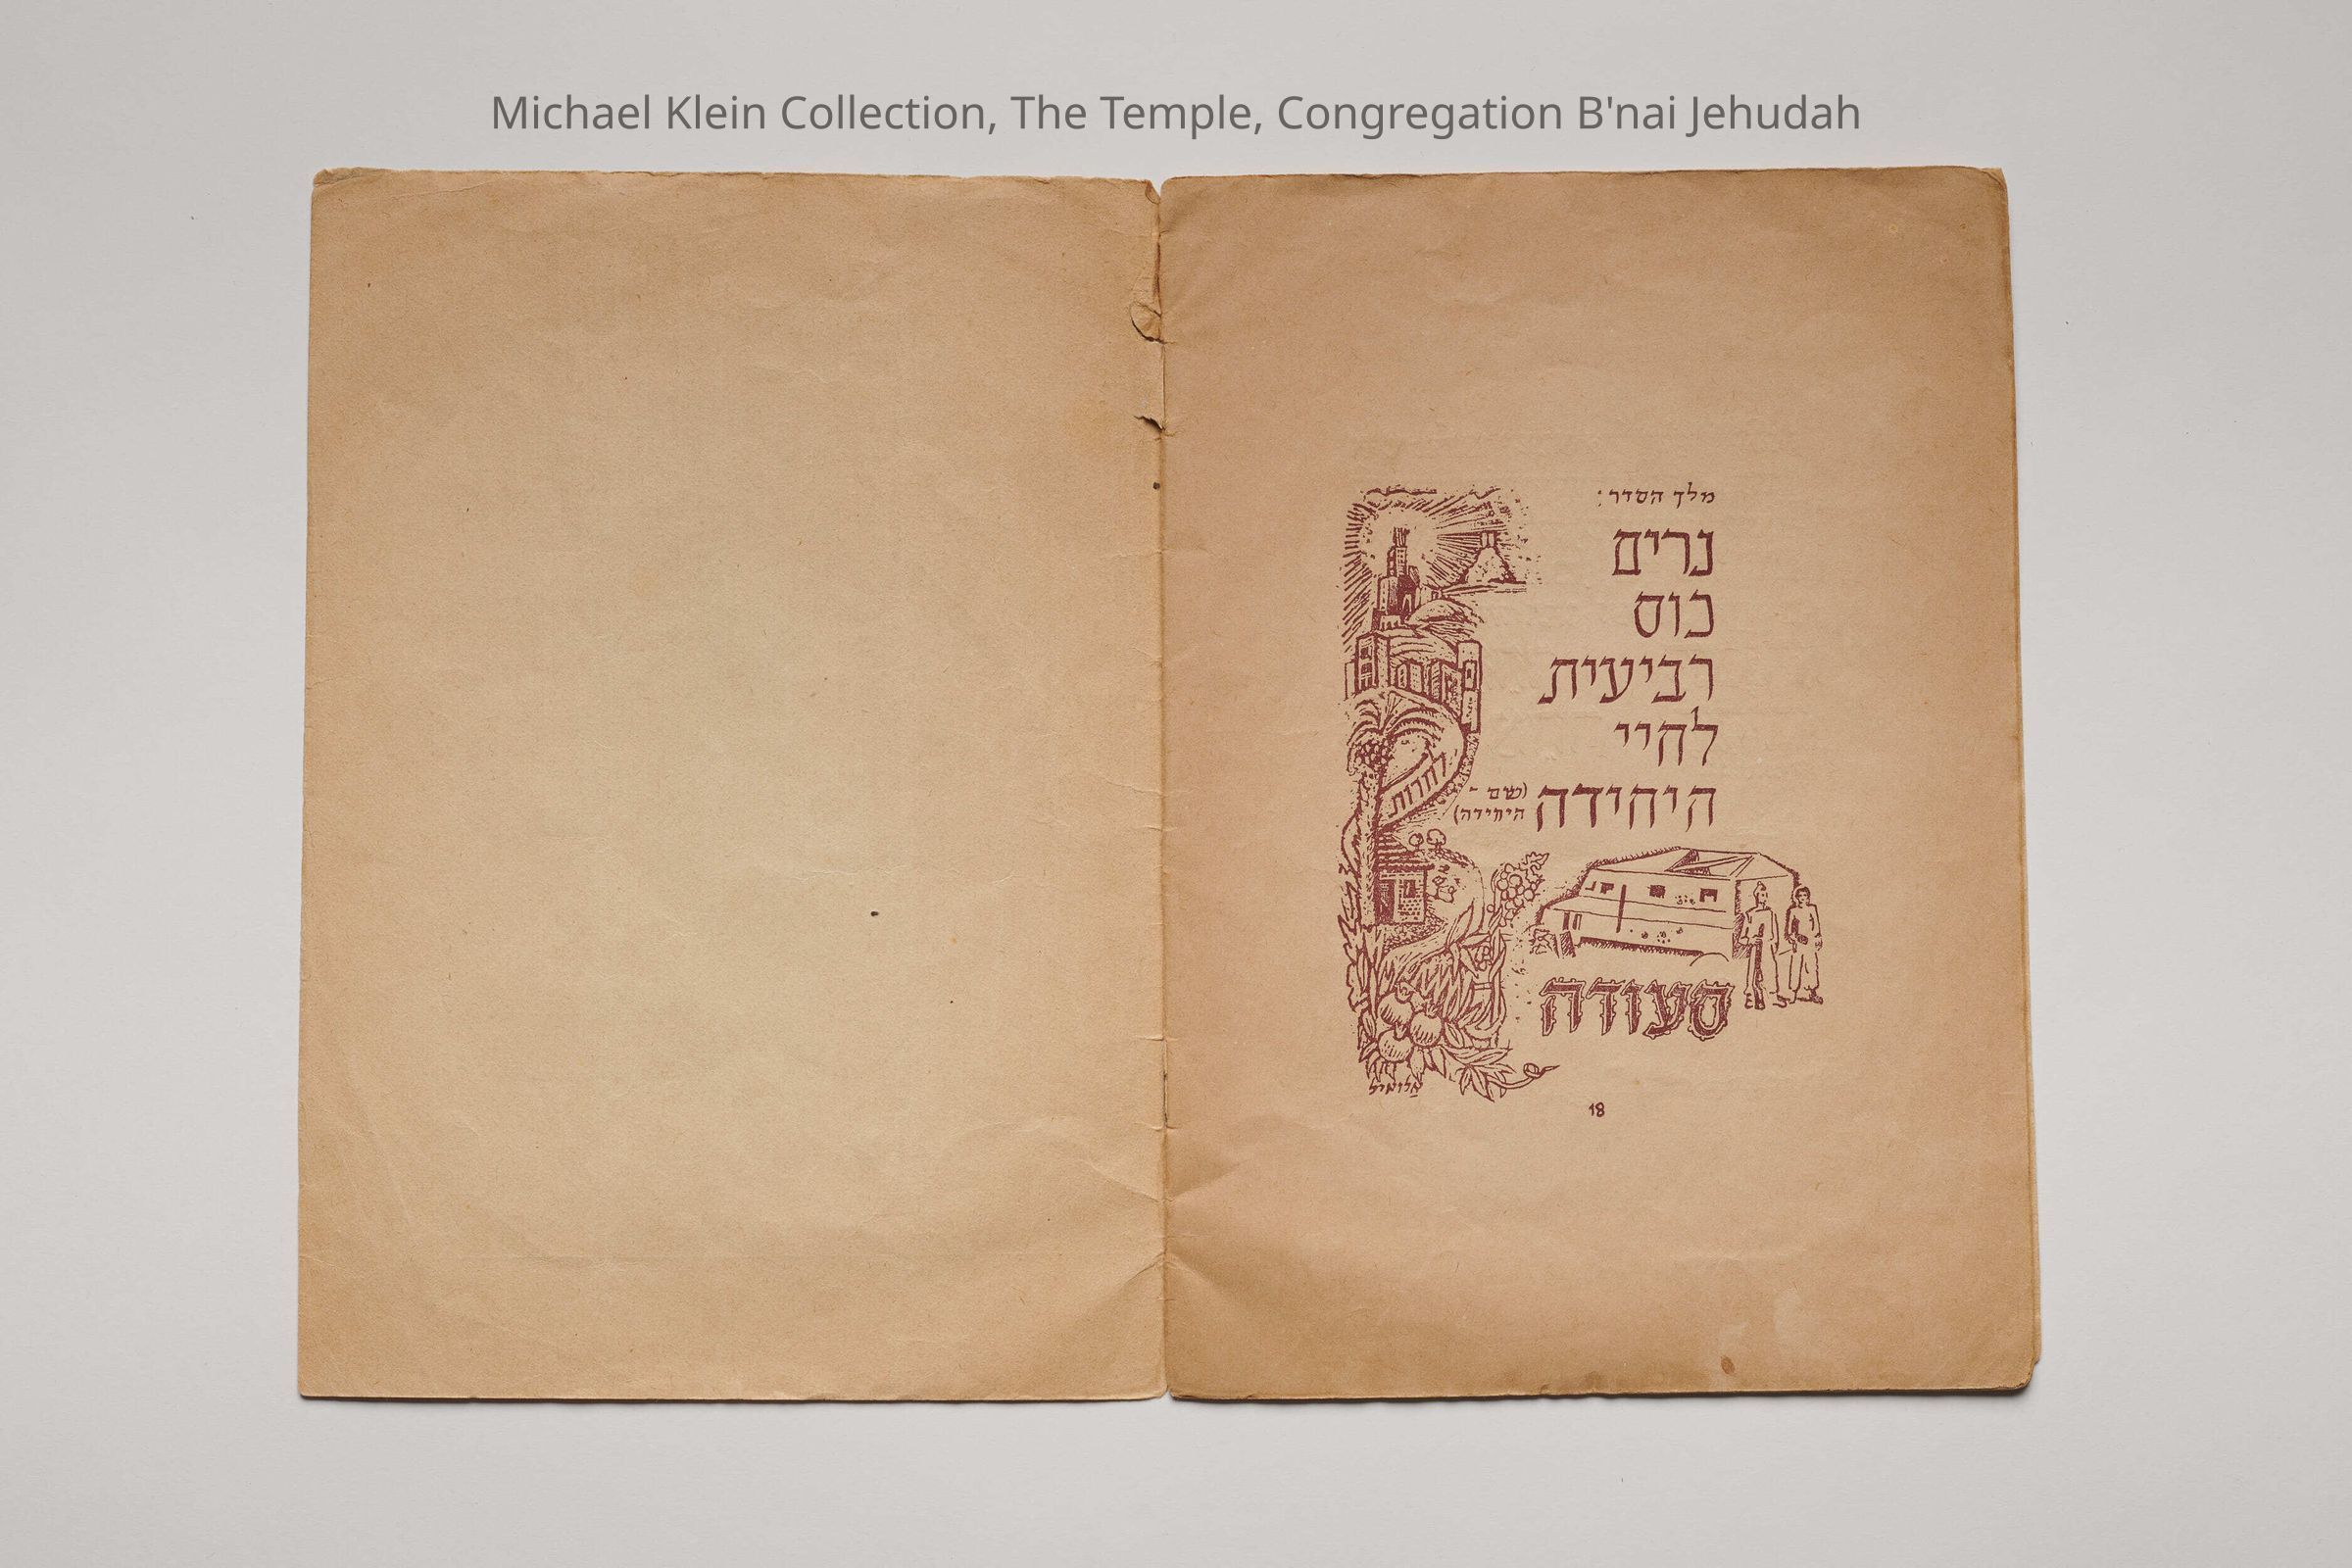 Michael Klein Collection, The Temple, Congregation B'nai Jehudah
מלך הסדר:
נרים
כוס
רביעית
לחיי
היחידה (שם -
היחידה)
לחרות
סעודה
18